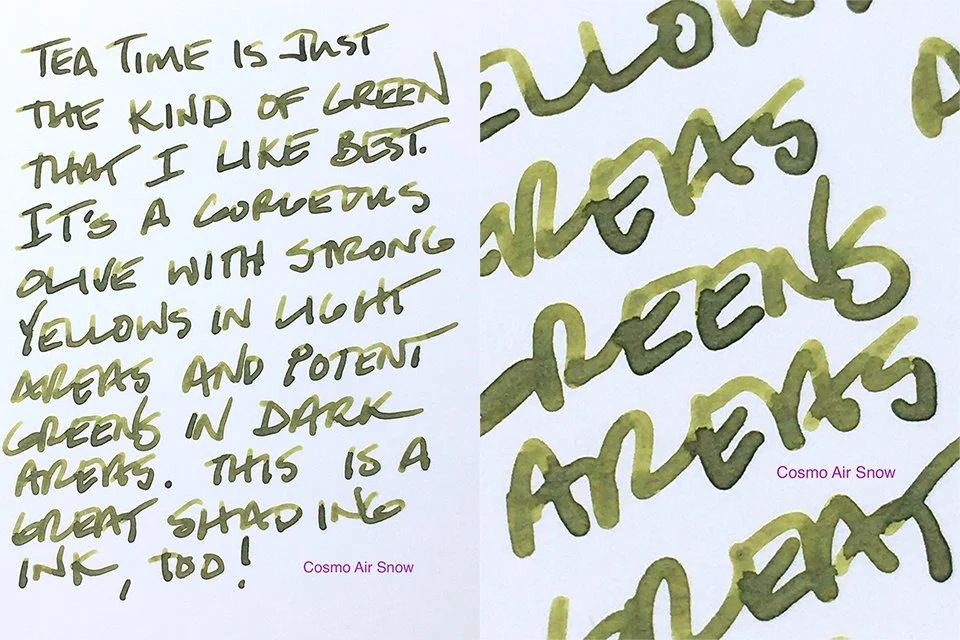 TEA TIME IS JUST
THE KIND OF GREEN
THAT I LIKE BEST.
IT'S A GORGEOUS
OLIVE WITH STRONG
YELLOWS IN LIGHT
AREAS AND POTENT
GREENS IN DARK
AREAS. THIS IS A
GREAT SHADING
INK, TOO!
Cosmo Air Snow
ELLOWS
AREAS A
GREENS
AREAS
Cosmo Air Snow
GREAT